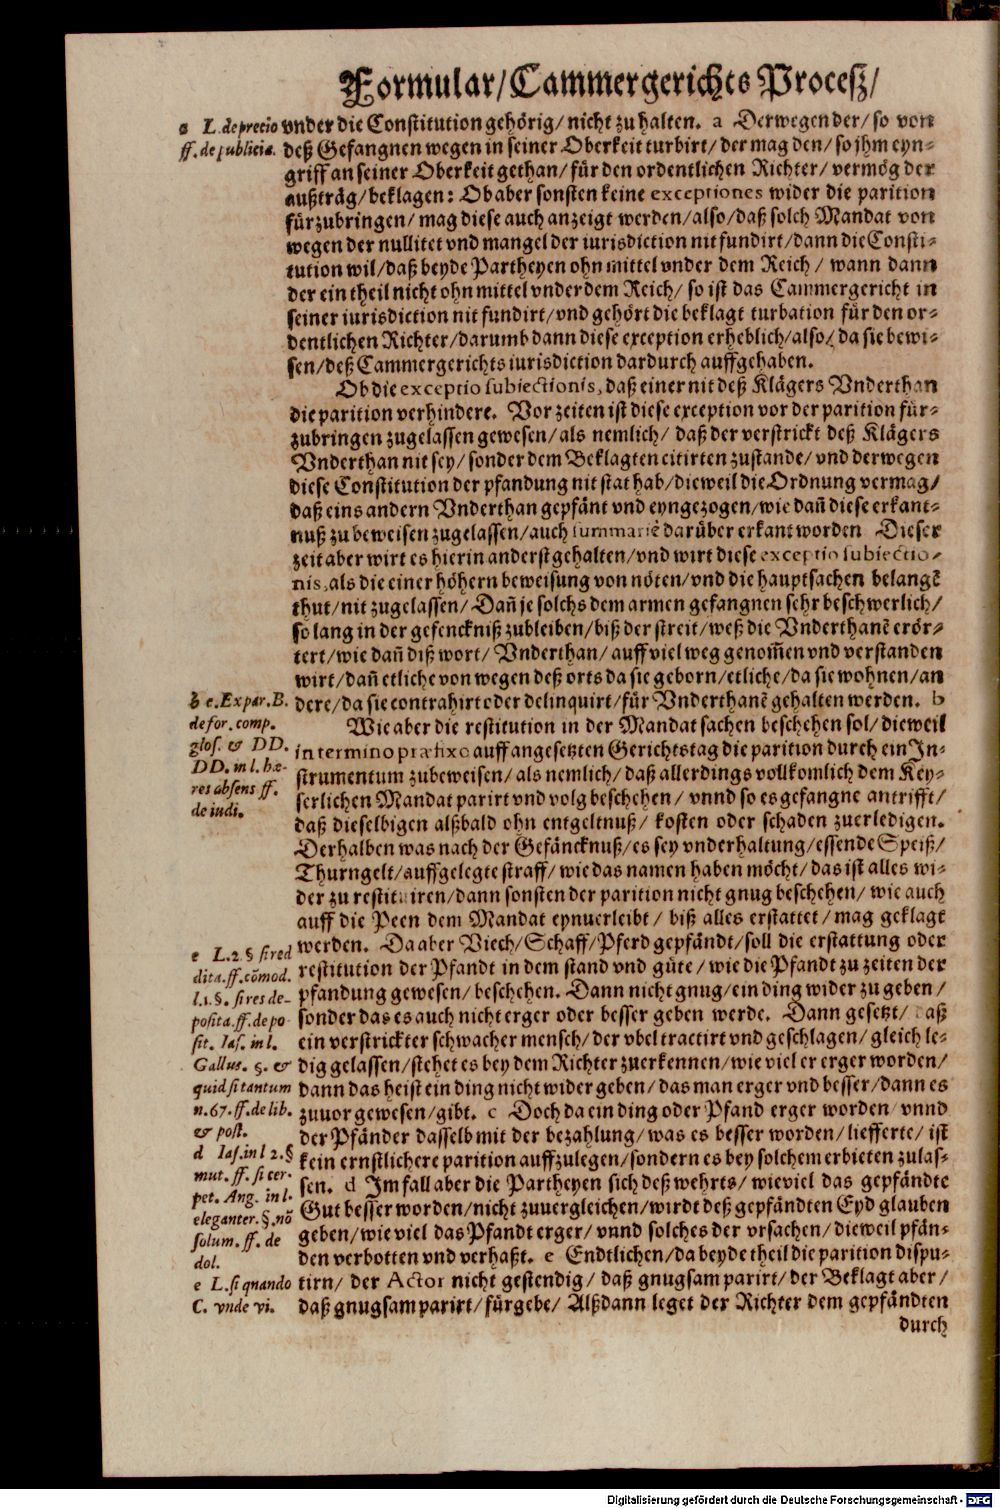 Formular/Cammergerichts Procesz/
vnder die Constitution gehörig/ nicht zu halten. a Derwegen der/ so von
deß Gefangnen wegen in seiner Oberkeit turbirt/ der mag den/ so jhm eyn-
griff an seiner Oberkeit gethan/ für den ordentlichen Richter/ vermög der
außträg/ beklagen: Ob aber sonsten keine exceptiones wider die parition
fürzubringen/ mag diese auch anzeigt werden/ also/ daß solch Mandat von
wegen der nullitet vnd mangel der iurisdiction nit fundirt/ dann die Consti-
tution wil/ daß beyde Partheyen ohn mittel vnder dem Reich / wann dann
der ein theil nicht ohn mittel vnder dem Reich/ so ist das Cammergericht in
seiner iurisdiction nit fundirt/ vnd gehört die beklagt turbation für den or-
dentlichen Richter/ darumb dann diese exception erheblich/ also/ da sie bewi-
sen/ deß Cammergerichts iurisdiction dardurch auffgehaben.
Ob die exceptio subiectionis, daß einer nit deß Klägers Vnderthan
die parition verhindere. Vor zeiten ist diese exception vor der parition für-
zubringen zugelassen gewesen/ als nemlich/ daß der verstrickt deß Klägers
Vnderthan nit sey/ sonder dem Beklagten citirten zustande/ vnd derwegen
diese Constitution der pfandung nit stat hab/ dieweil die Ordnung vermag/
daß eins andern Vnderthan gepfänt vnd eyngezogen/ wie dañ diese erkant-
nuß zu beweisen zugelassen/ auch summariè darüber erkant worden Dieser
zeit aber wirt es hierin anderst gehalten/ vnd wirt diese exceptio subiectio-
nis, als die einer höhern beweisung von nöten/ vnd die hauptsachen belangē
thut/ nit zugelassen/ Dañ je solchs dem armen gefangnen sehr beschwerlich/
so lang in der gefenckniß zubleiben/ biß der streit/ weß die Vnderthanē erör-
tert/ wie dañ diß wort/ Vnderthan/ auff viel weg genom̃en vnd verstanden
wirt/ dañ etliche von wegen deß orts da sie geborn/ etliche/ da sie wohnen/ an
dere/ da sie contrahirt oder delinquirt/ für Vnderthanē gehalten werden. b
Wie aber die restitution in der Mandat sachen beschehen sol/ dieweil
in termino præfixo auff angesetzten Gerichtstag die parition durch ein In-
strumentum zubeweisen/ als nemlich/ daß allerdings vollkomlich dem Key-
serlichen Mandat parirt vnd volg beschehen / vnnd so es gefangne antrifft/
daß dieselbigen alßbald ohn entgeltnuß/ kosten oder schaden zuerledigen.
Derhalben was nach der Gefäncknuß/ es sey vnderhaltung/ essende Speiß/
Thurngelt/ auffgelegte straff/ wie das namen haben möcht/ das ist alles wi-
der zu restituiren/ dann sonsten der parition nicht gnug beschehen/ wie auch
auff die Peen dem Mandat eynuerleibt / biß alles erstattet / mag geklagt
werden. Da aber Viech/ Schaff/ Pferd gepfändt/ soll die erstattung oder
restitution der Pfandt in dem stand vnd güte / wie die Pfandt zu zeiten der
pfandung gewesen/ beschehen. Dann nicht gnug/ ein ding wider zu geben /
sonder das es auch nicht erger oder besser geben werde. Dann gesetzt/ daß
ein verstrickter schwacher mensch/ der vbel tractirt vnd geschlagen/ gleich le-
dig gelassen/ stehet es bey dem Richter zuerkennen/ wie viel er erger worden/
dann das heist ein ding nicht wider geben/ das man erger vnd besser/ dann es
zuuor gewesen/ gibt. c Doch da ein ding oder Pfand erger worden/ vnnd
der Pfänder dasselb mit der bezahlung/ was es besser worden/ liefferte/ ist
kein ernstlichere parition auffzulegen/ sondern es bey solchem erbieten zulas-
sen. d Im fall aber die Partheyen sich deß wehrts/ wieviel das gepfändte
Gut besser worden/ nicht zuuergleichen/ wirdt deß gepfändten Eyd glauben
geben/ wie viel das Pfandt erger/ vnnd solches der vrsachen/ dieweil pfän-
den verbotten vnd verhaßt. e Endtlichen/ da beyde theil die parition dispu-
tirn/ der Actor nicht gestendig/ daß gnugsam parirt/ der Beklagt aber /
daß gnugsam parirt/ fürgebe/ Alßdann leget der Richter dem gepfändten
durch
a L. de precio
ff. de publicia.
b c. Ex par. B.
de for. comp.
glos. & DD.
DD. in l. hæ-
res absens ff.
de iudi.
c L. 2. § si red
dita. ff. cōmod.
l. 1. §. si res de-
posita. ff. de po-
sit. Ias. in l.
Gallus. §. &
quid si tantum
n. 67. ff. de lib.
& post.
d Ias. in l 2. §
mut. ff. si cer-
pet. Ang. in l.
eleganter. §. nō
solum. ff. de
dol.
e L. si quando
C. vnde vi.
Digitalisierung gefördert durch die Deutsche Forschungsgemeinschaft - DFG